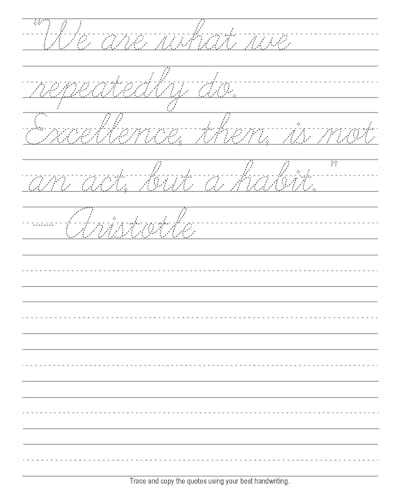 "We are what we
repeatedly do.
Excellence, then, is not
an act, but a habit."
— Aristotle
Trace and copy the quotes using your best handwriting.